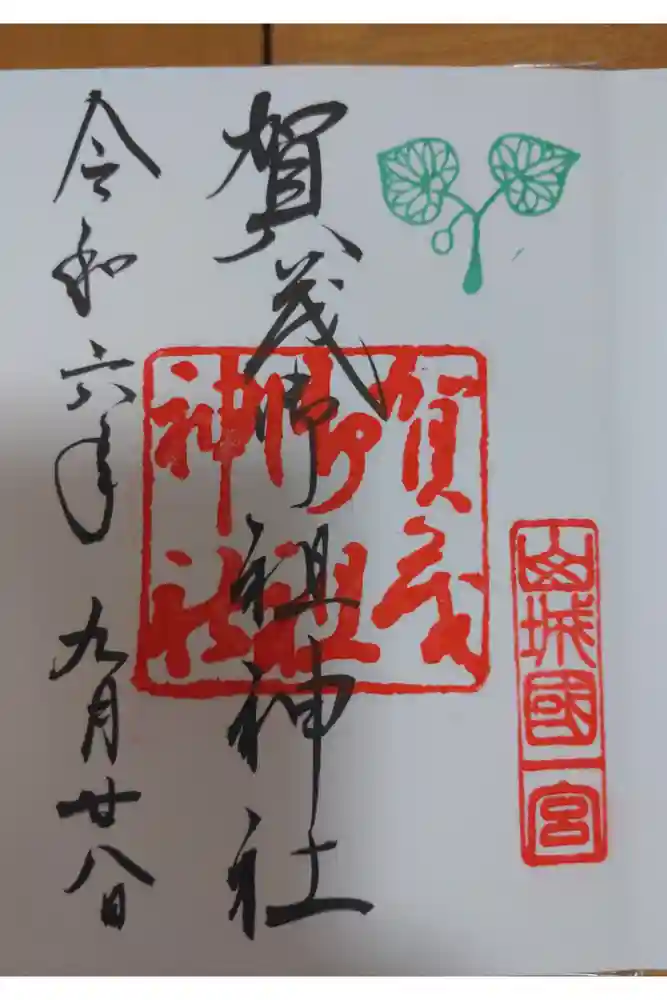 山城國一宮
賀茂御祖神社
賀茂
御祖
神社
令和六年 九月廿八日